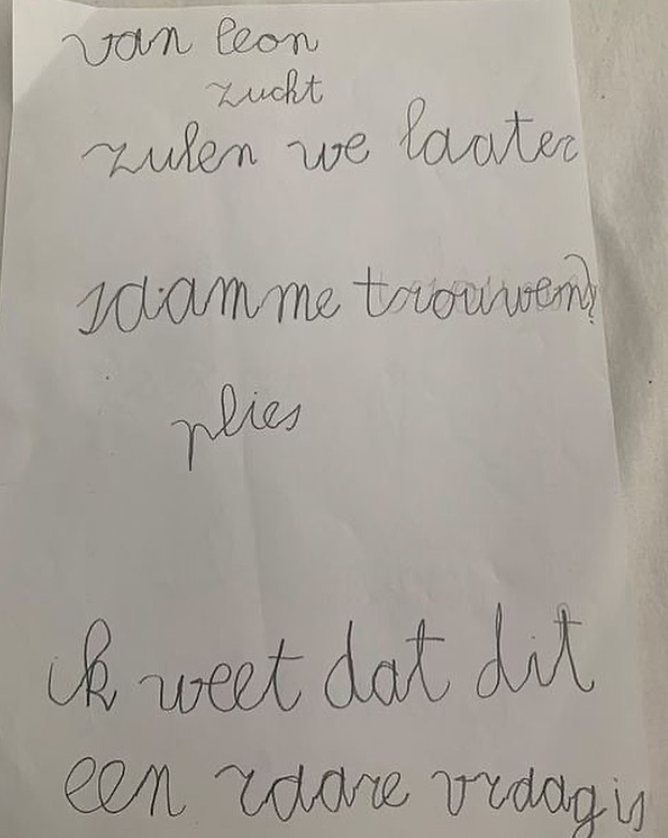 van leon
zucht
zulen we laater
sdamme trouwen?
plies
ik weet dat dit
een raare vraag is